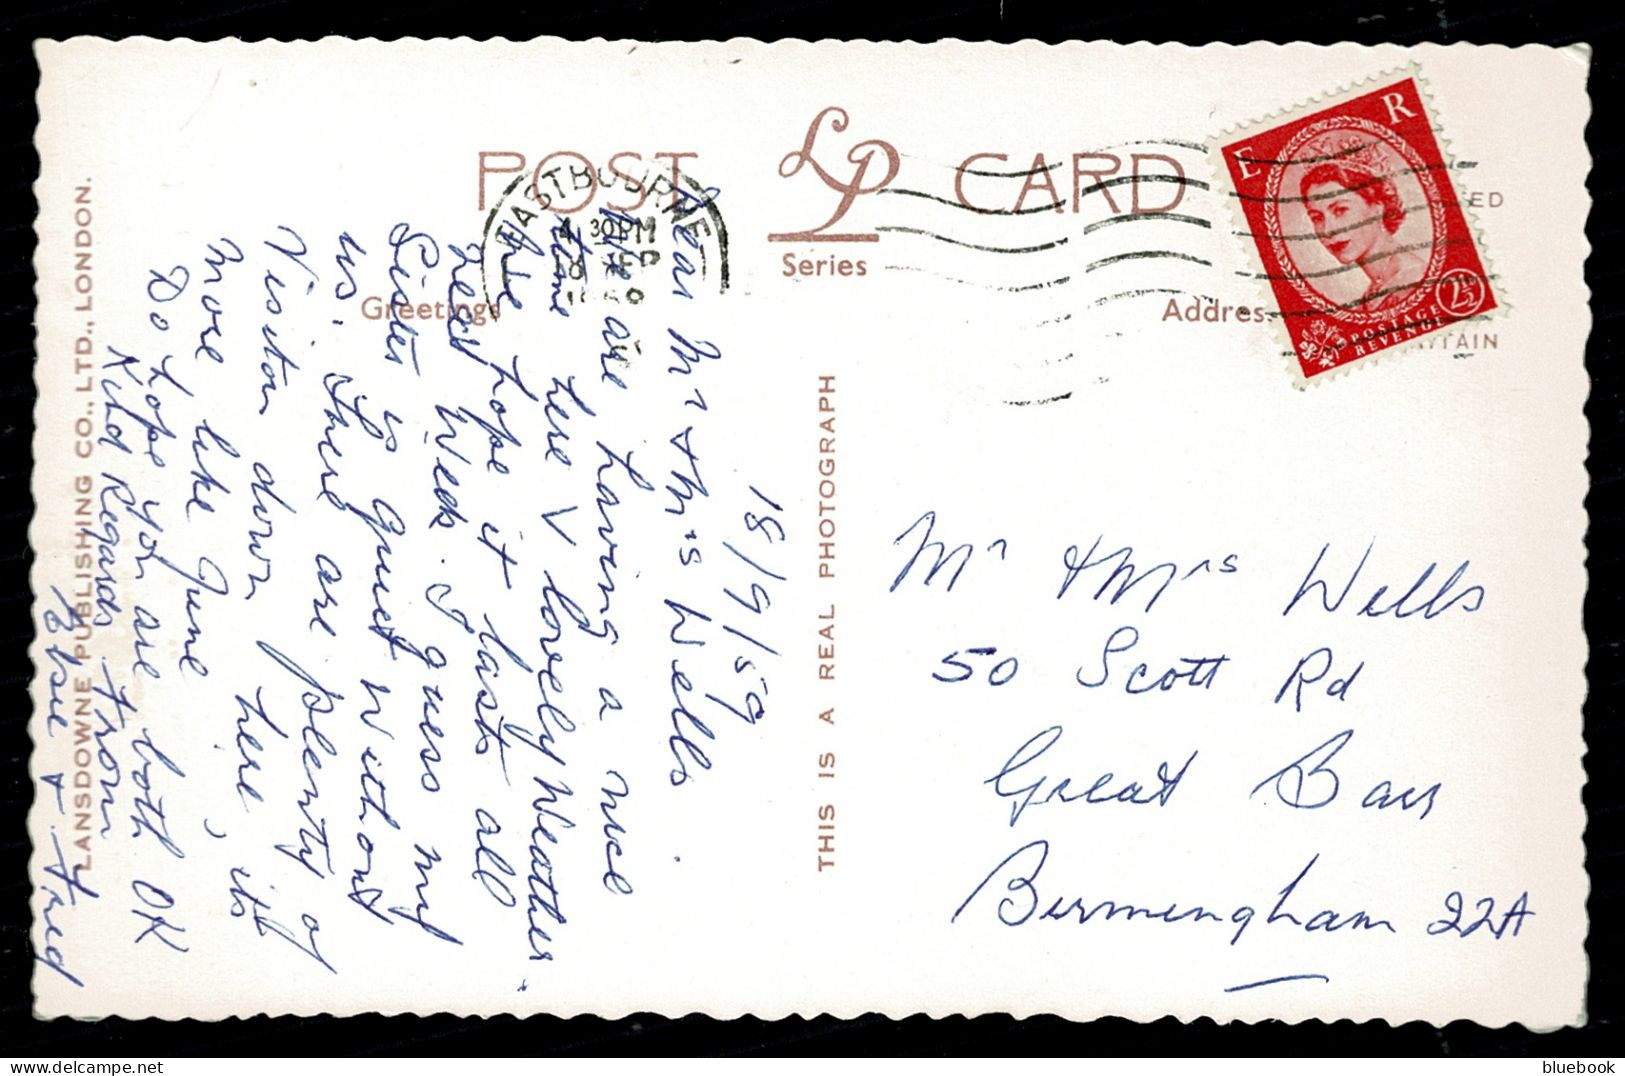 POST LP CARD
Series
Greetings
Address
EASTBOURNE
4 30 PM
SEP
E R
2½
POSTAGE
REVENUE
ED
ITAIN
18/9/59
Dear Mr & Mrs Wells.
We are having a nice
time here & lovely Weather.
We hope it lasts all
next Week. I guess my
Sister is quiet Without
us. There are plenty of
Visitors down here, its
more like June
Do hope you are both OK
Kind Regards from
Elsie & Fred
LANSDOWNE PUBLISHING CO., LTD., LONDON.
THIS IS A REAL PHOTOGRAPH
Mr & Mrs Wells
50 Scott Rd
Great Barr
Birmingham 22A
bluebook